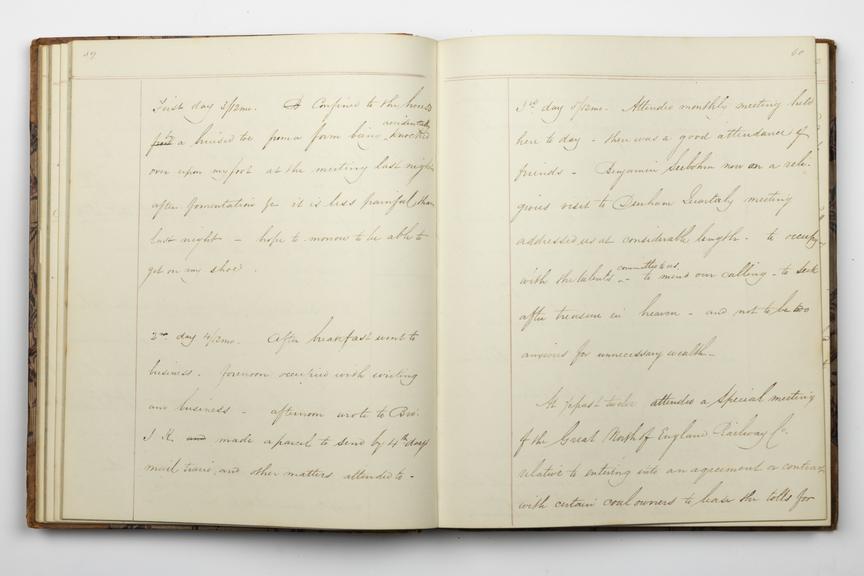 59
First day 3/12mo. Confined to the house
accidentally
from a bruised toe from a form being knocked
over upon my foot at the meeting last night
after fomentation &c it is less painful than
last night - hope to morrow to be able to
get on my shoe.
2nd day 4/12mo. After breakfast went to
business. forenoon occupied with writing
and business - afternoon wrote to Bro.
J. K. and made a parcel to send by 4th days
mail train, and other matters attended to -
60
3rd day 5/12mo. Attended monthly meeting held
here to day - there was a good attendance of
friends - Benjamin Seebohm now on a reli-
gious visit to Durham Quarterly meeting
addressed us at considerable length - to occupy
committed to us
with the talents - to mind our calling - to seek
after treasure in heaven - and not to be too
anxious for unnecessary wealth -
At ½ past twelve attended a Special meeting
of the Great North of England Railway Co.
relative to entering into an agreement or contract
with certain coal owners to lease the tolls for